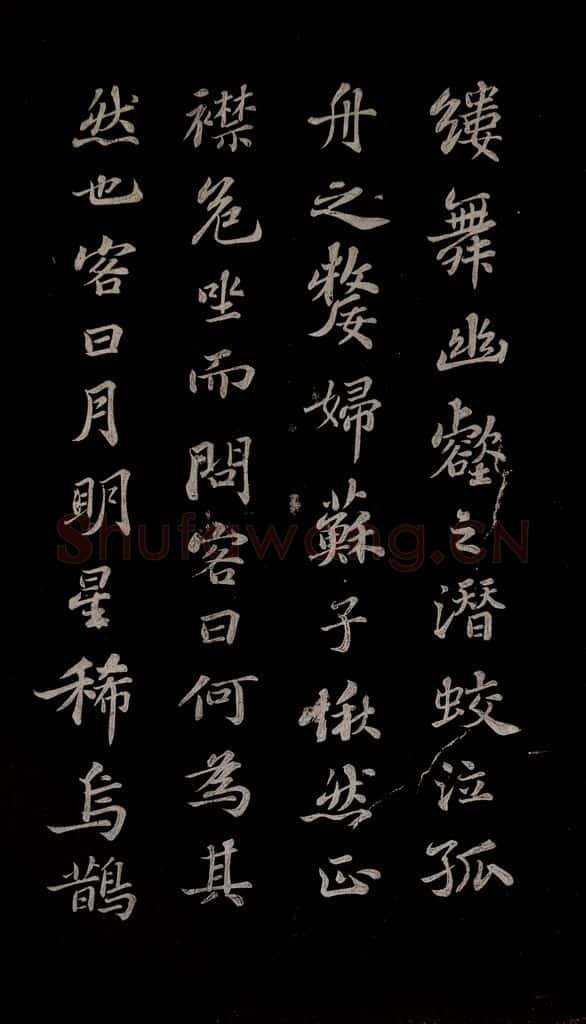 缕舞幽壑之潛蛟泣孤
舟之嫠婦蘇子愀然正
襟危坐而問客曰何為其
然也客曰月明星稀烏鵲
Shufawang.CN